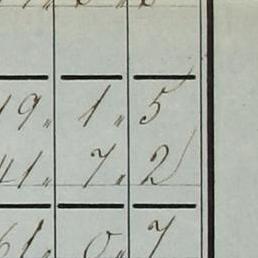 19 " 1 " 5
41 " 7 " 2
61 " 0 " 7